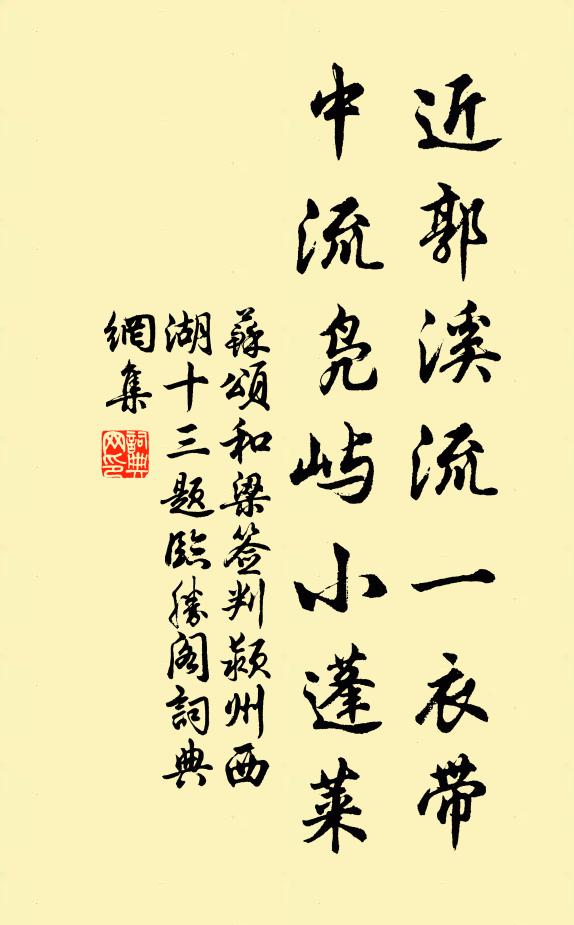 近郭溪流一衣带
中流凫屿小蓬莱
蘇頌和梁签判颍州西
湖十三题臨勝阁詞典
網集
詞典
网印